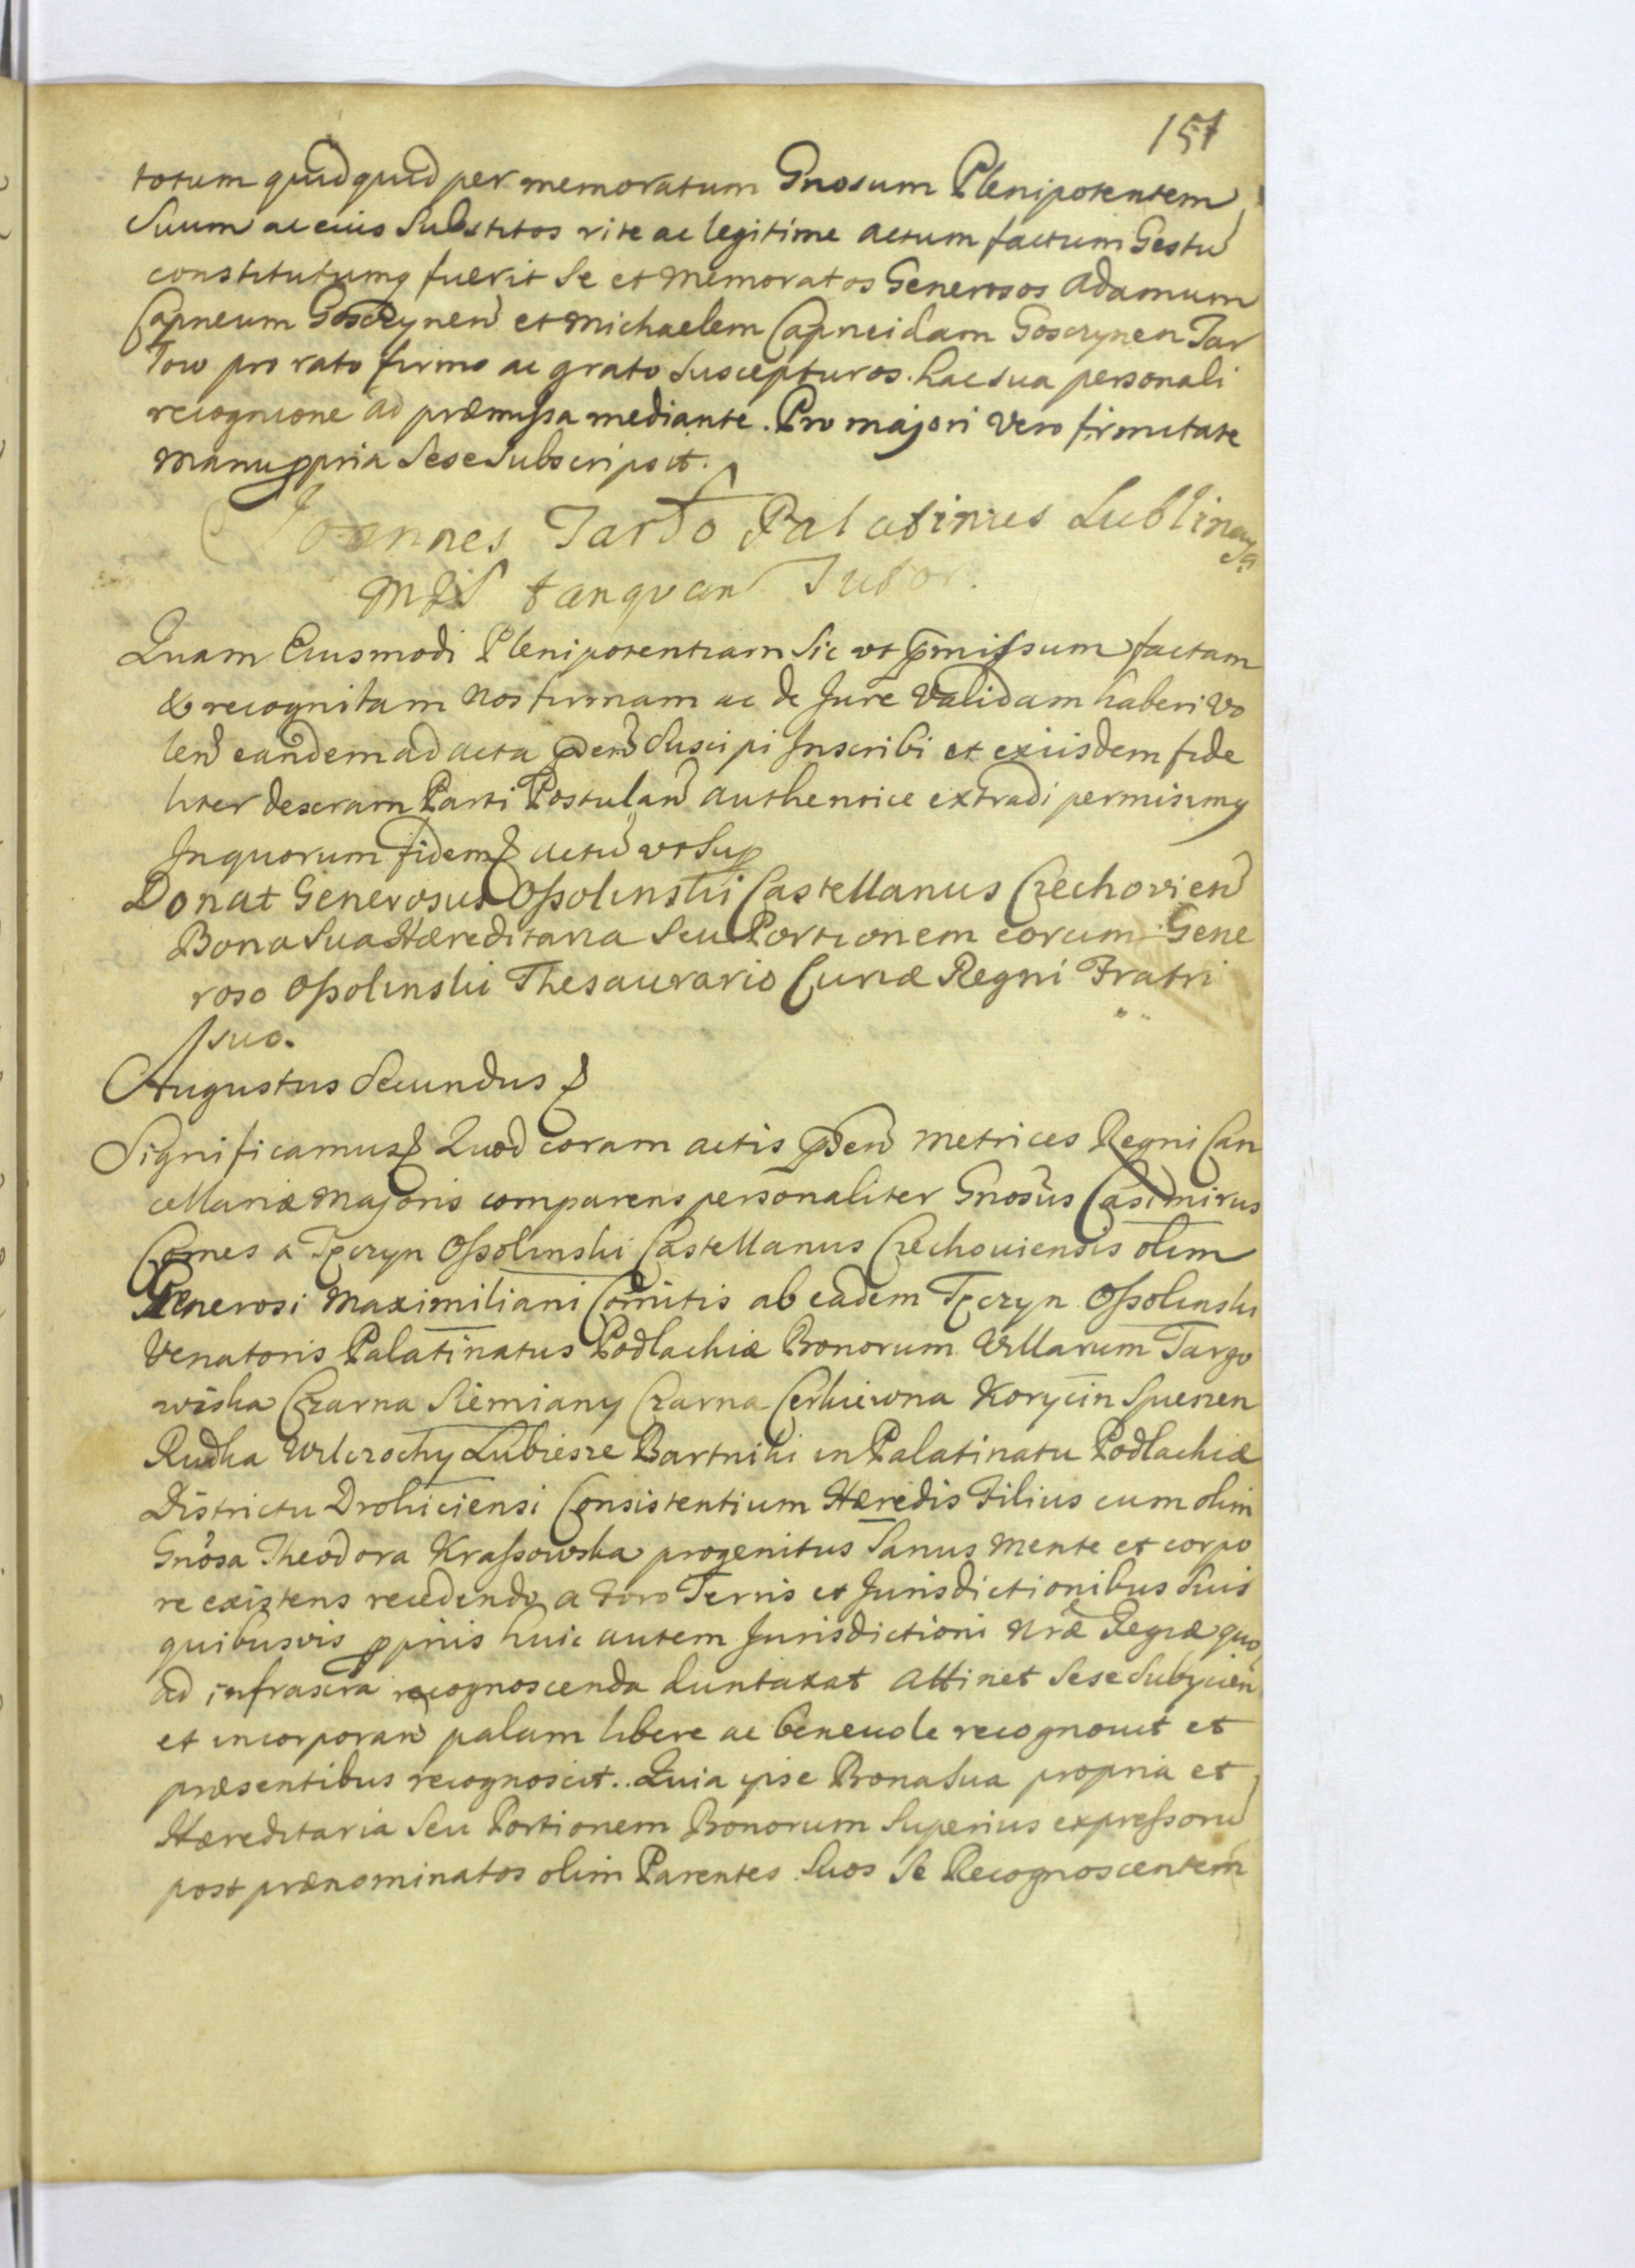 151
totum quidquid per memoratum Gnosum Plenipotentem
Suum ac eius Substitos rite ac legitime actum factum Gestu
constitutumq fuerit Se et Memoratos Generosos Adamum
Capneum Goszynen et Michaelem Capneidam Goszynen Tar
Tow pro rato firmo ac grato Suscepturos. hac sua personali
recognicone ad præmissa mediante. Pro majori vero firmitate
Manu ppria Sese Subscripsit.
Joannes Tarło Palatinus Lublinen
tanquam Tutor.
Quam Eiusmodi Plenipotentiam Sic vt pmissum factam
& recognitam Nos firmam ac de Jure Validam haberi Vo
len eandem ad acta pden Suscipi Inscribi et ex iisdem fide
liter descram Parti Postulan Authentice extradi permisimq
In quorum fidem actu vt Sup
Donat Generosus Ossolinski Castellanus Czechovien
Bona Sua Hæreditaria Seu Portionem eorum Gene
roso Ossolinski Thesaurario Curiæ Regni Fratri
suo.
Augustus Secundus
Significamus Quod coram actis pden Metrices Regni Can
cellariæ Majoris comparens personaliter Gnosus Casimirus
Comes a Tęczyn Ossolinski Castellanus Czechoviensis olim
Generosi Maximiliani Comitis ab eadem Tęczyn Ossolinski
Venatoris Palatinatus Podlachiæ Bonorum Villarum Targo
wiska Czarna Siemiany Czarna Cerkiewna Korycin Spieszen
Rudka Wilczochy Lubiesze Bartniki in Palatinatu Podlachiæ
Districtu Drohiciensi Consistentium Hæredis Filius cum olim
Gnosa Theodora Krassowska progenitus Sanus Mente et corpo
re existens recedendo a foro Terris et Jurisdictionibus Suis
quibusvis ppriis huic autem Jurisdictioni Nræ Regiæ quo
ad infrascra recognoscenda duntaxat Attinet Sese Subyicien
et incorporan palam libere ac benevole recognovit et
præsentibus recognoscit. Quia ipse Bona Sua propria et
Hæreditaria Seu Portionem Bonorum Superius expressoru
post prænominatos olim Parentes Suos Se Recognoscentem